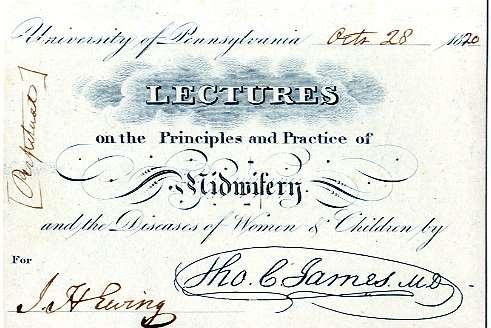 University of Pennsylvania Octr 28 1820
LECTURES
on the Principles and Practice of
Midwifery
and the Diseases of Women & Children by
[Perpetual]
For
Tho. C. James. M.D.
J H Ewing